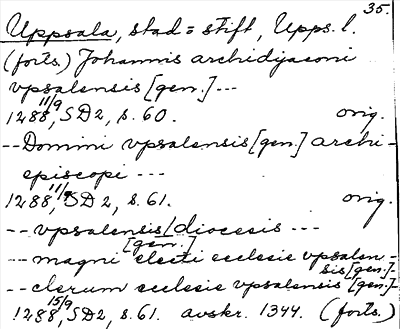 35.
Uppsala, stad = stift, Upps. l.
(forts.) Johannis archidyaconi
vpsalensis [gen.] ---
1288 11/9, SD2, s. 60. orig.
-- Domini vpsalensis [gen.] archi-
episcopi ---
1288 11/9, SD2, s. 61. orig.
-- vpsalensis [gen.] diocesis ---
-- magni electi ecclesie vpsalen-
sis [gen.] -
-- clerum ecclesie vpsalensis [gen.] -
1288 15/9, SD2, s. 61. avskr. 1344. (forts.)